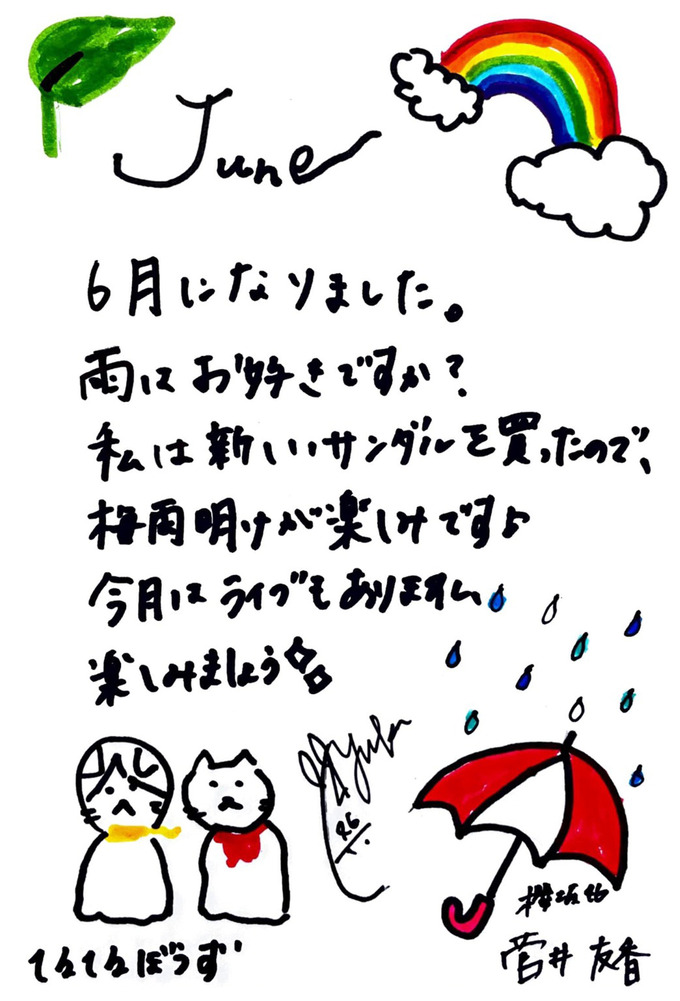 June
6月になりました。
雨はお好きですか?
私は新しいサンダルを買ったので、
梅雨明けが楽しみです♪
今月はライブも
楽しみましょう
てるてるぼうず
櫻坂46
菅井友香